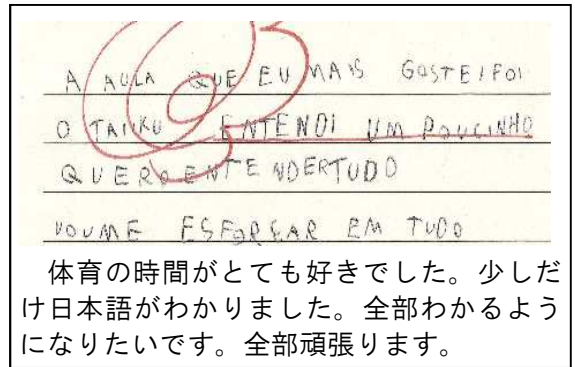 A AULA QUE EU MAIS GOSTEI FOI
O TAIIKU ENTENDI UM POUCINHO
QUERO ENTENDER TUDO
VOU ME ESFORÇAR EM TUDO
体育の時間がとても好きでした。少しだ
け日本語がわかりました。全部わかるよう
になりたいです。全部頑張ります。